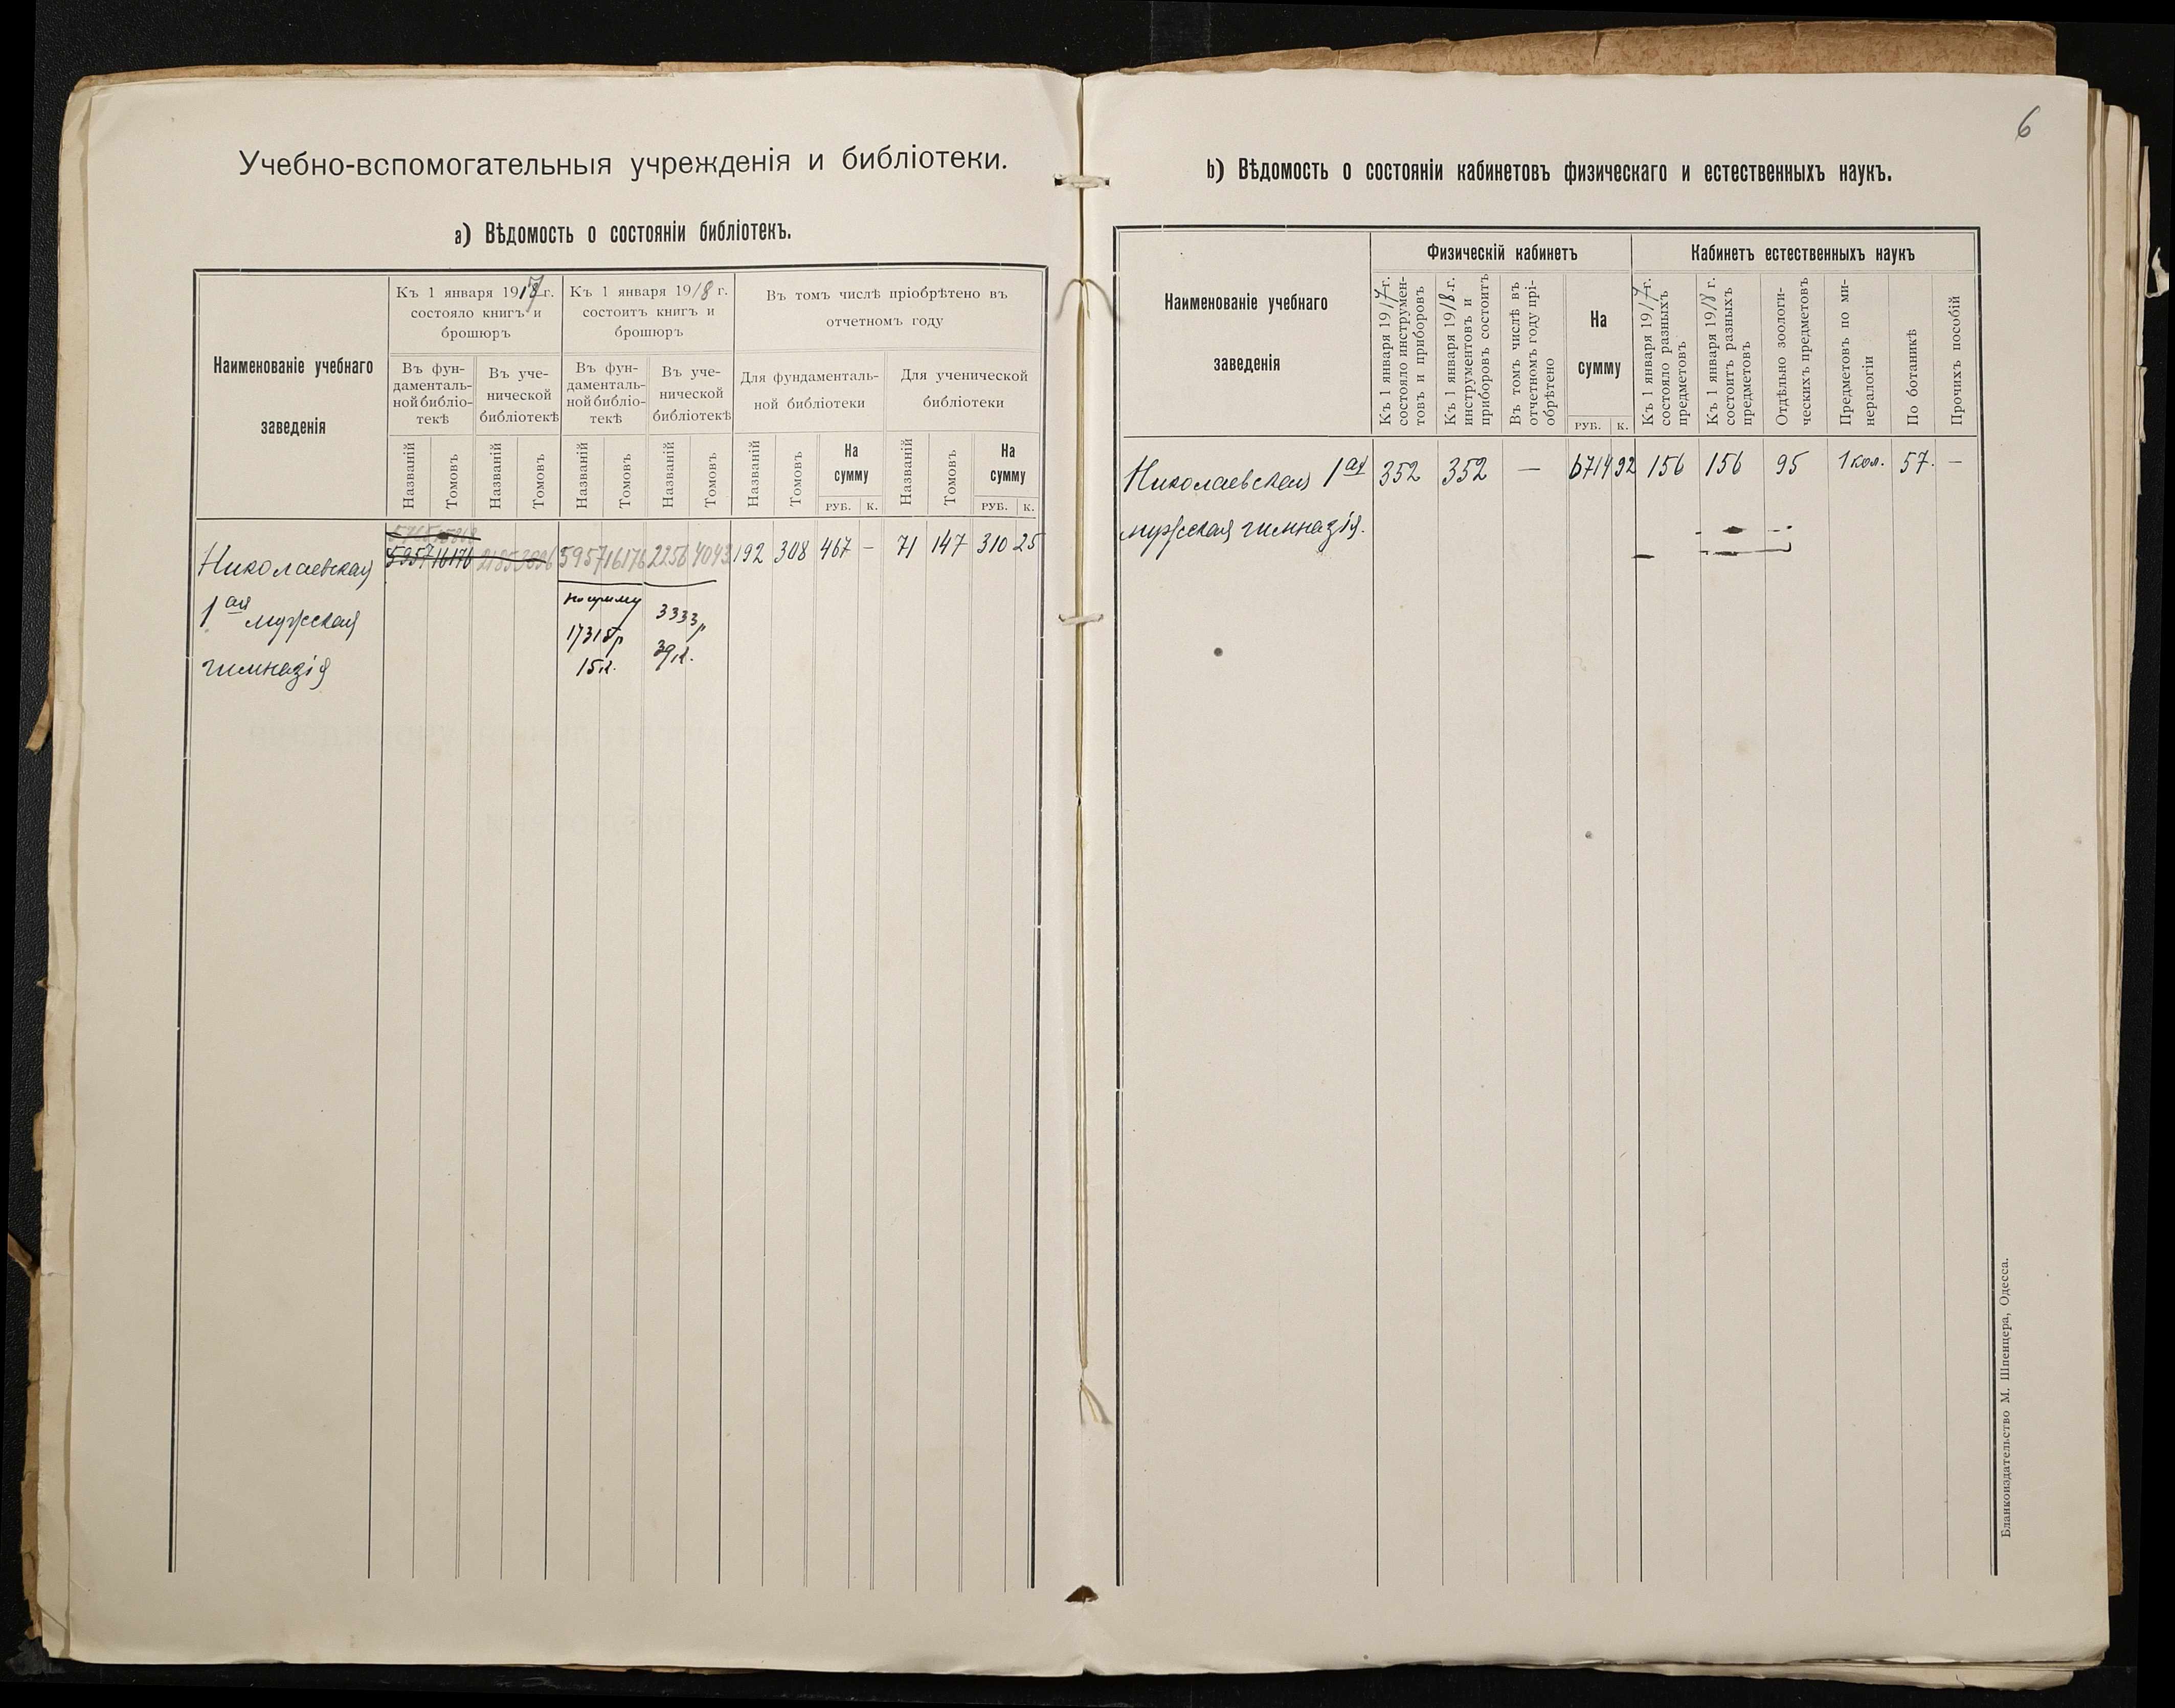 6
Учебно-вспомогательныя учрежденія и библіотеки.
а) Вѣдомость о состояніи библіотекъ.
Наименованіе учебнаго
заведенія
Къ 1 января 1917 г.
состояло книгъ и
брошюръ
Къ 1 января 1918 г.
состоитъ книгъ и
брошюръ
Въ томъ числѣ пріобрѣтено въ
отчетномъ году
Въ фун-
даменталь-
ной библіо-
текѣ
Въ уче-
нической
библіотекѣ
Въ фун-
даменталь-
ной библіо-
текѣ
Въ уче-
нической
библіотекѣ
Для фундаменталь-
ной библіотеки
Для ученической
библіотеки
Названій
Томовъ
Названій
Томовъ
Названій
Томовъ
Названій
Томовъ
Названій
Томовъ
На
сумму
РУБ. К.
Названій
Томовъ
На
сумму
РУБ. К.
Николаевская
1ая мужская
гимназія
5957 16176 5957 16176 2256 4043 192 308 467 — 71 147 310 25
на сумму
17318р
15к.
3333р
39к.
b) Вѣдомость о состояніи кабинетовъ физическаго и естественныхъ наукъ.
Наименованіе учебнаго
заведенія
Физическій кабинетъ
Кабинетъ естественныхъ наукъ
Къ 1 января 1917 г.
состояло инструмен-
товъ и приборовъ
Къ 1 января 1918 г.
инструментовъ и
приборовъ состоитъ
Въ томъ числѣ въ
отчетномъ году прі-
обрѣтено
На
сумму
РУБ. К.
Къ 1 января 1917 г.
состояло разныхъ
предметовъ
Къ 1 января 1918 г.
состоитъ разныхъ
предметовъ
Отдѣльно зоологи-
ческихъ предметовъ
Предметовъ по ми-
нералогіи
По ботаникѣ
Прочихъ пособій
Николаевская 1ая 352 352 — 6714 92 156 156 95 1 кол. 57. —
мужская гимназія.
Бланкоиздательство М. Шпенцера, Одесса.